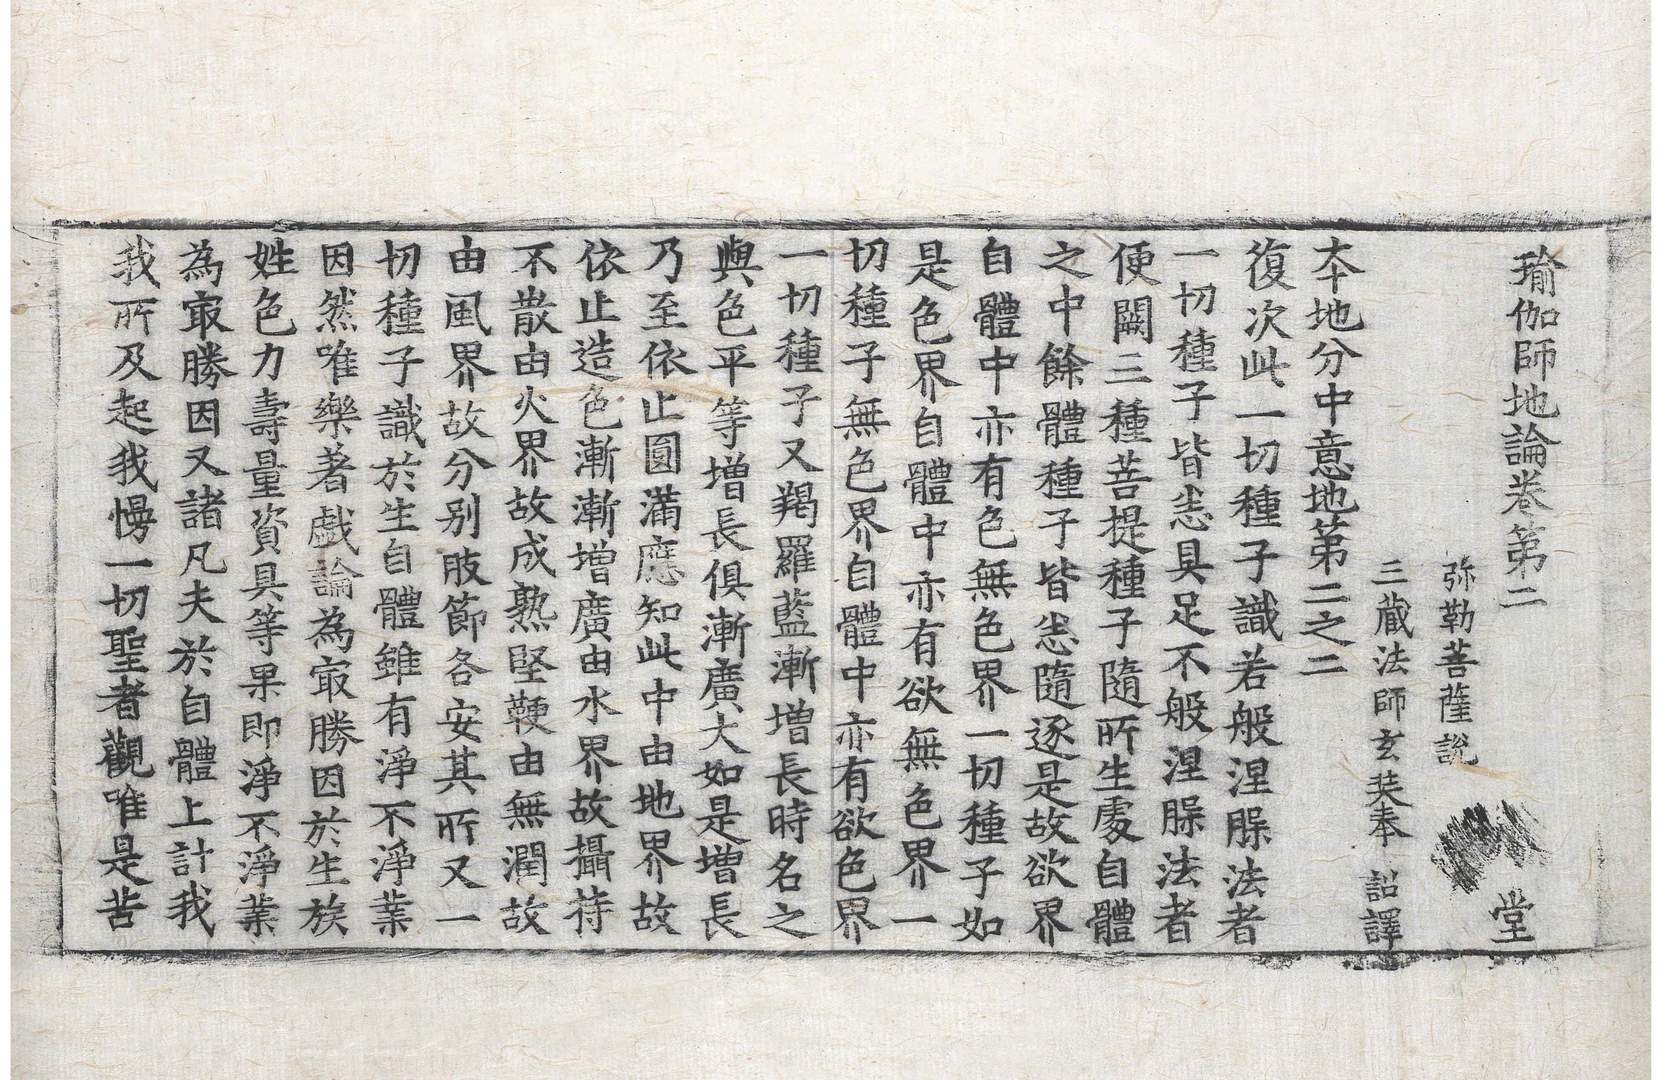 瑜伽師地論卷第二 堂
弥勒菩薩說
三藏法師玄奘奉 詔譯
本地分中意地第二之二
復次此一切種子識若般涅脲法者
一切種子皆悉具足不般涅脲法者
便闕三種菩提種子隨所生處自體
之中餘體種子皆悉隨逐是故欲界
自體中亦有色無色界一切種子如
是色界自體中亦有欲無色界一
切種子無色界自體中亦有欲色界
一切種子又羯羅藍漸增長時名之
與色平等增長俱漸廣大如是增長
乃至依止圓滿應知此中由地界故
依止造色漸漸增廣由水界故攝持
不散由火界故成熟堅鞕由無潤故
由風界故分別肢節各安其所又一
切種子識於生自體雖有淨不淨業
因然唯樂著戲論為㝡勝因於生族
姓色力壽量資具等果即淨不淨業
為㝡勝因又諸凡夫於自體上計我
我所及起我慢一切聖者觀唯是苦